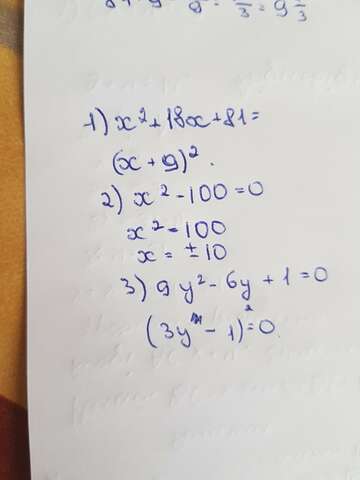 1) x² + 18x + 81 =
(x + 9)².
2) x² - 100 = 0
x² = 100
x = ± 10
3) 9y² - 6y + 1 = 0
(3y - 1)² = 0.